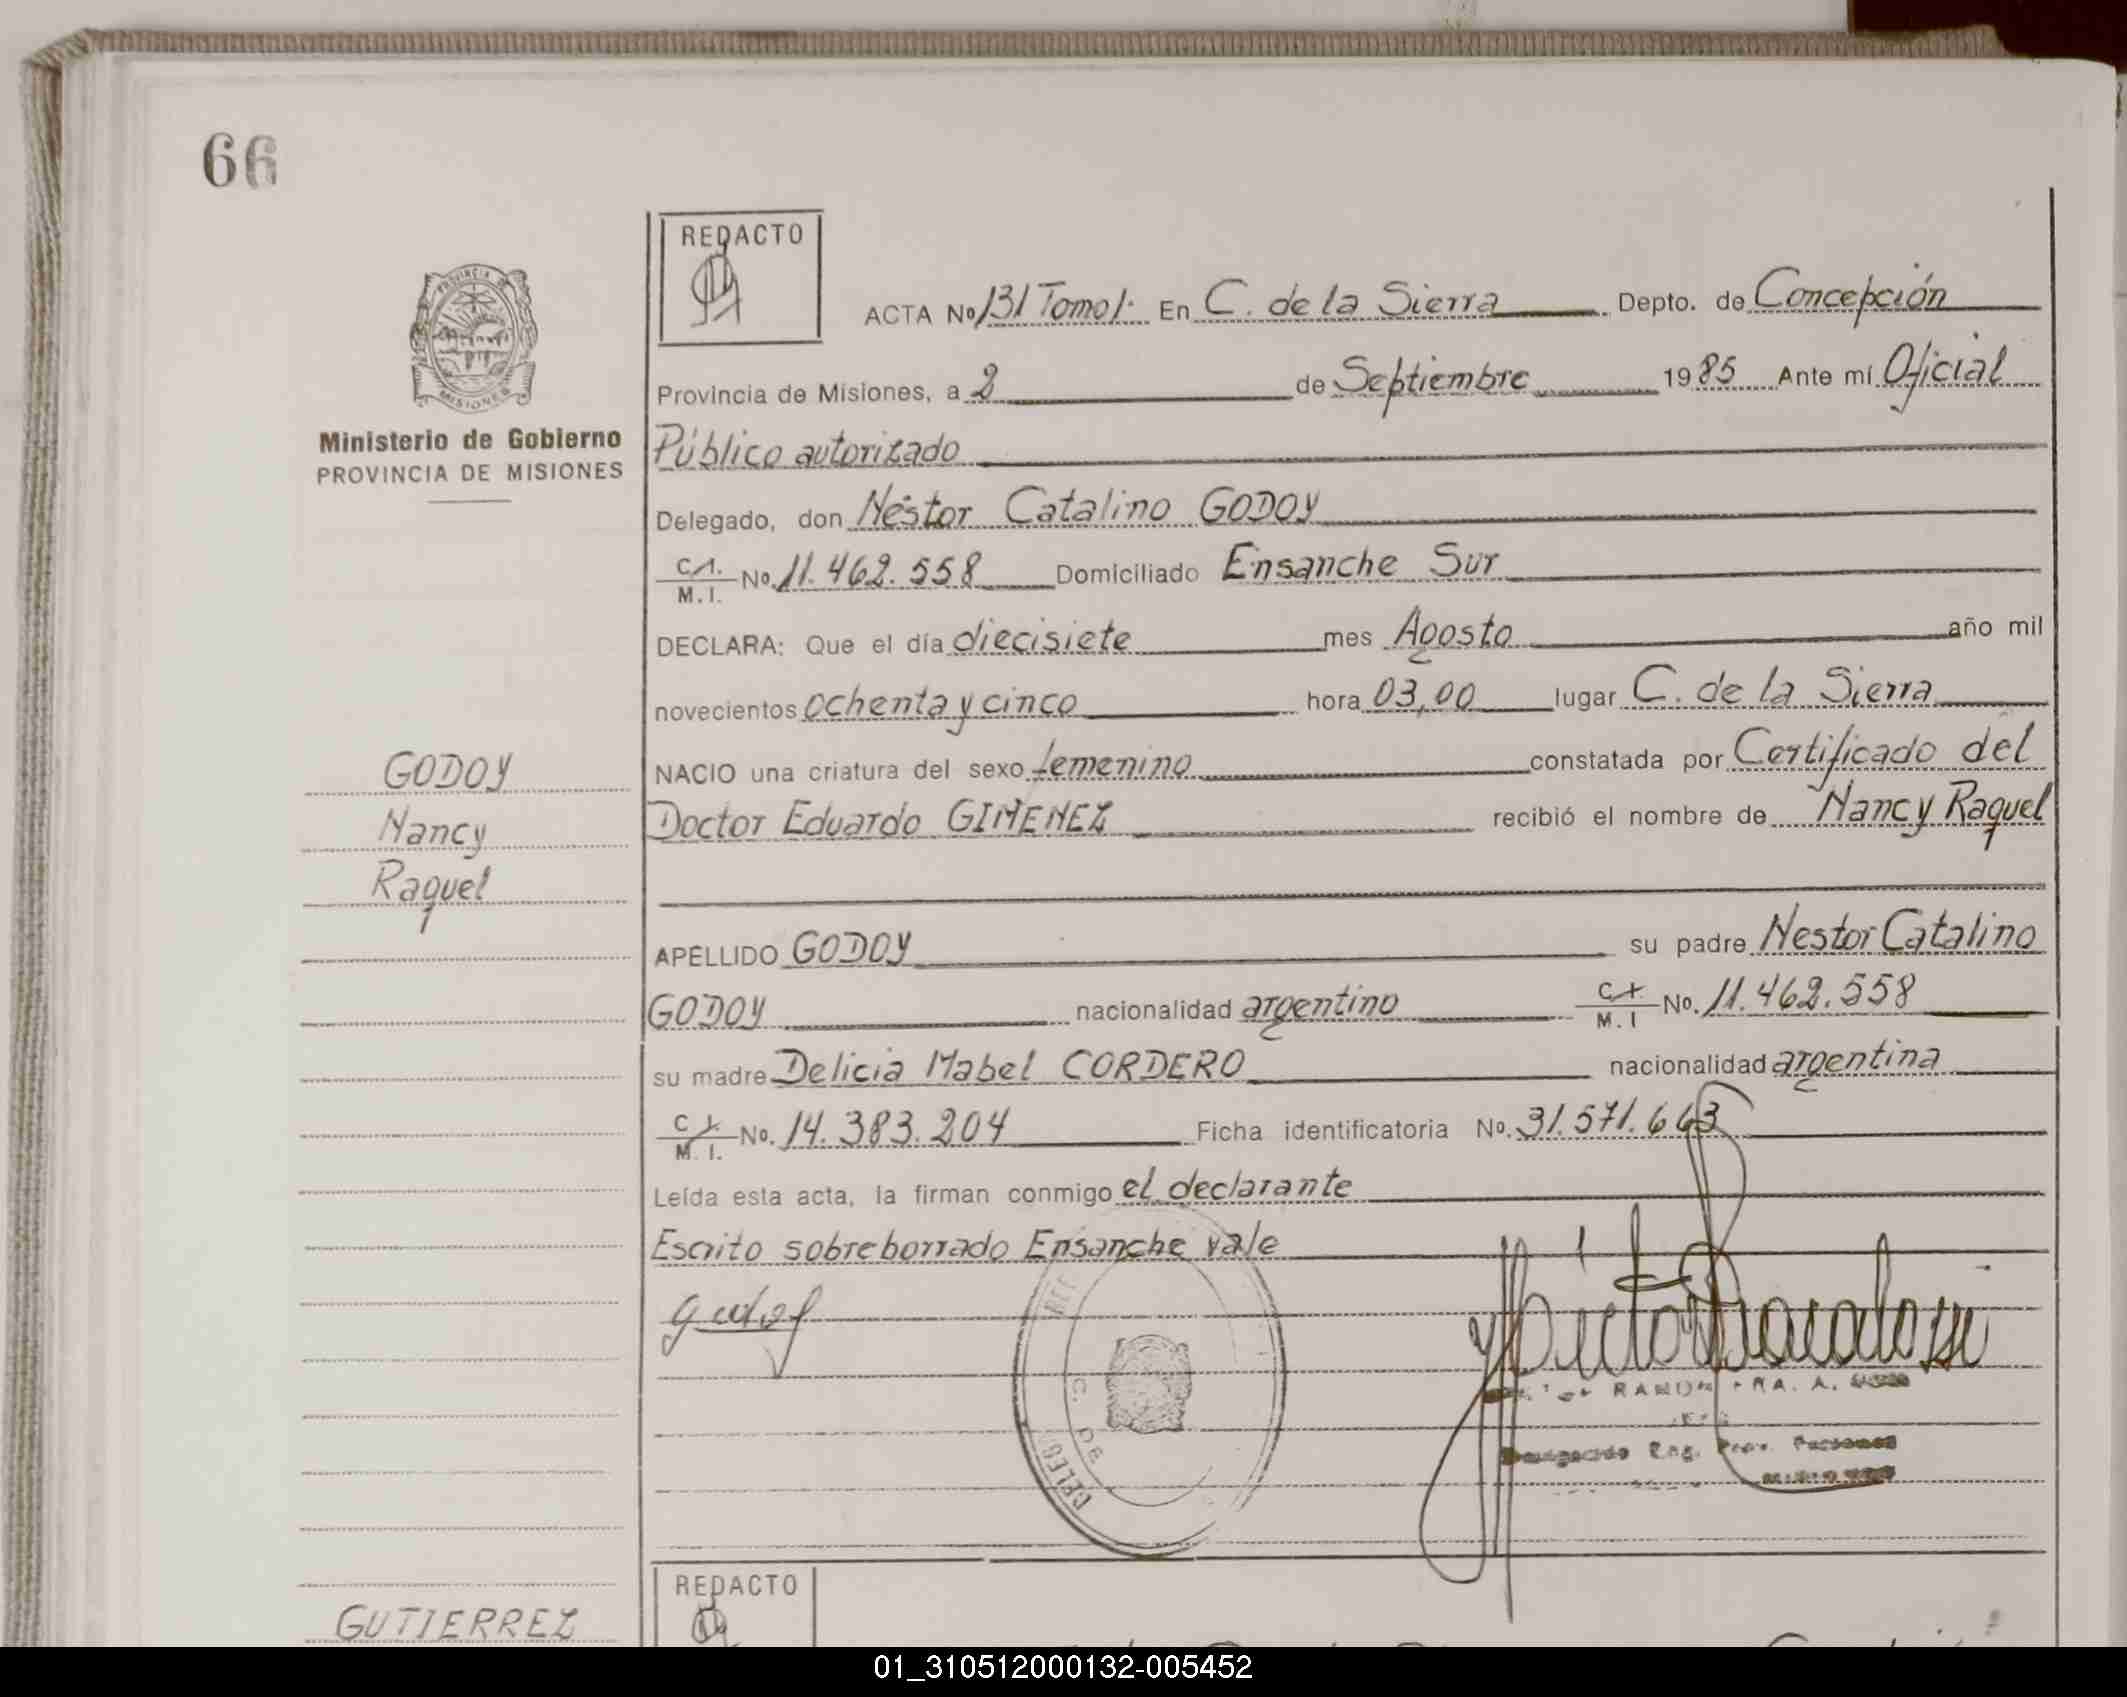 66
REDACTO
ACTA No 131 Tomo 1. En C. de la Sierra Depto. de Concepción
Provincia de Misiones, a 2 de Septiembre 1985 Ante mí Oficial
Ministerio de Gobierno
PROVINCIA DE MISIONES
Público autorizado
Delegado, don Néstor Catalino GODOY
C.I. M.I. No. 11.462.558 Domiciliado Ensanche Sur
DECLARA: Que el día diecisiete mes Agosto año mil
novecientos ochenta y cinco hora 03,00 lugar C. de la Sierra
GODOY
Nancy
Raquel
NACIO una criatura del sexo femenino constatada por Certificado del
Doctor Eduardo GIMENEZ recibió el nombre de Nancy Raquel
APELLIDO GODOY su padre Nestor Catalino
GODOY nacionalidad argentino C.I. M.I No. 11.462.558
su madre Delicia Mabel CORDERO nacionalidad argentina
C.I. M.I. No. 14.383.204 Ficha identificatoria No. 31.571.663
Leída esta acta, la firman conmigo el declarante
Escrito sobreborrado Ensanche vale
Godoy
RAMON
Reg. Prov. Personas
DELEG
C. DE
REDACTO
GUTIERREZ
01_310512000132-005452